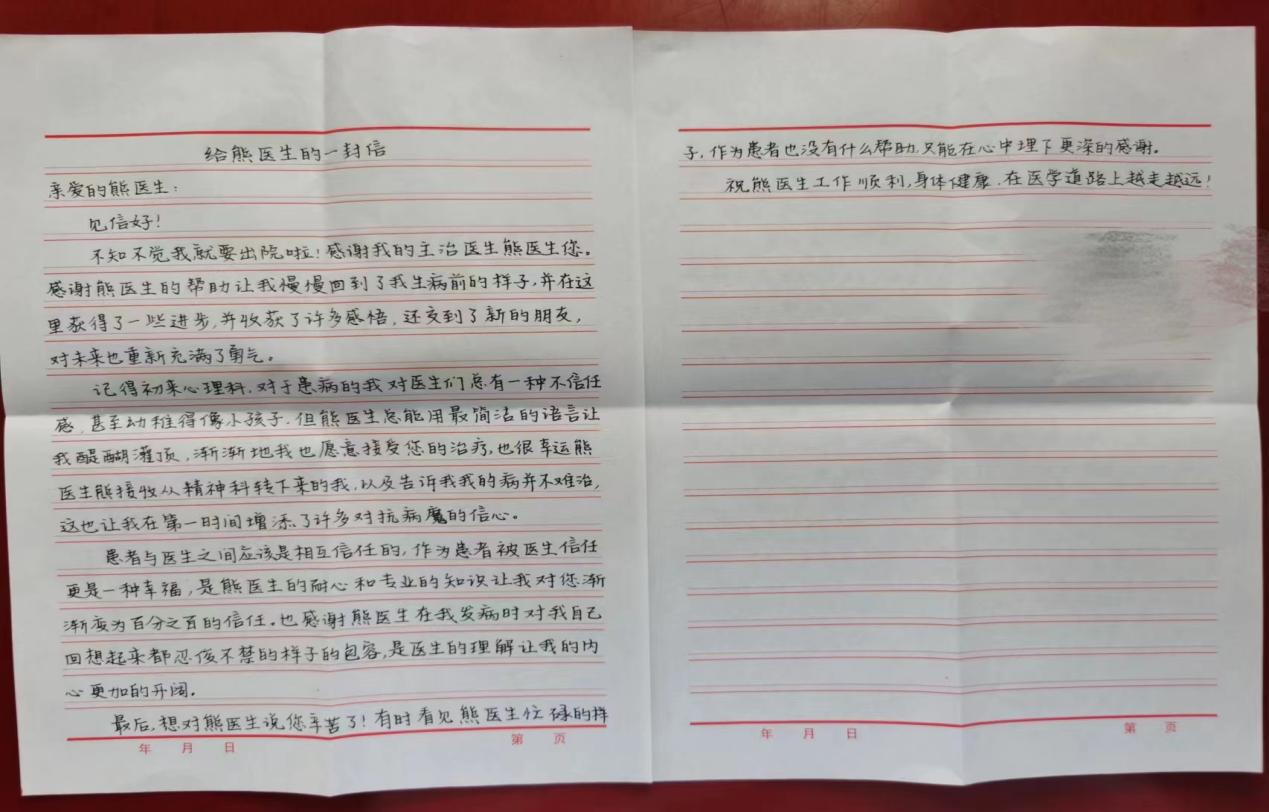 给熊医生的一封信
亲爱的熊医生：
见信好！
不知不觉我就要出院啦！感谢我的主治医生熊医生您。
感谢熊医生的帮助让我慢慢回到了我生病前的样子，并在这
里获得了一些进步，并收获了许多感悟，还交到了新的朋友，
对未来也重新充满了勇气。
记得初来心理科，对于患病的我对医生们总有一种不信任
感，甚至幼稚得像小孩子，但熊医生总能用最简洁的语言让
我醍醐灌顶，渐渐地我也愿意接受您的治疗，也很幸运熊
医生能接收从精神科转下来的我，以及告诉我我的病并不难治，
这也让我在第一时间增添了许多对抗病魔的信心。
患者与医生之间应该是相互信任的，作为患者被医生信任
更是一种幸福，是熊医生的耐心和专业的知识让我对您渐
渐变为百分之百的信任。也感谢熊医生在我发病时对我自己
回想起来都忍俊不禁的样子的包容，是医生的理解让我的内
心更加的开阔。
最后，想对熊医生说您辛苦了！有时看见熊医生忙碌的样
年 月 日
第 页
子，作为患者也没有什么帮助，只能在心中埋下更深的感谢。
祝熊医生工作顺利，身体健康，在医学道路上越走越远！
年 月 日
第 页